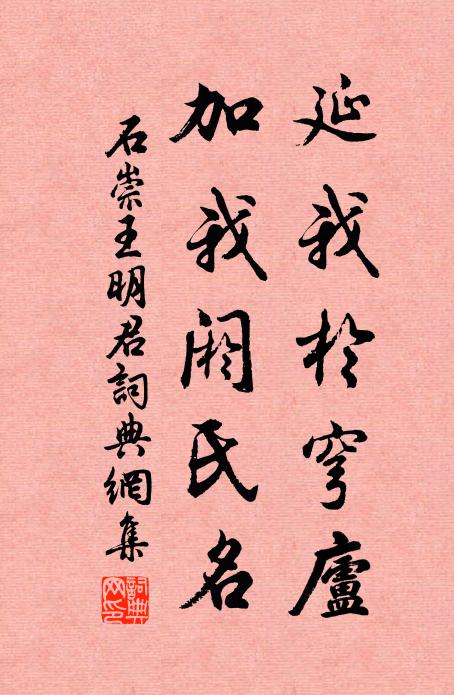 延我於穹廬
加我閼氏名
石崇王明君詞典網集
詞典
网印